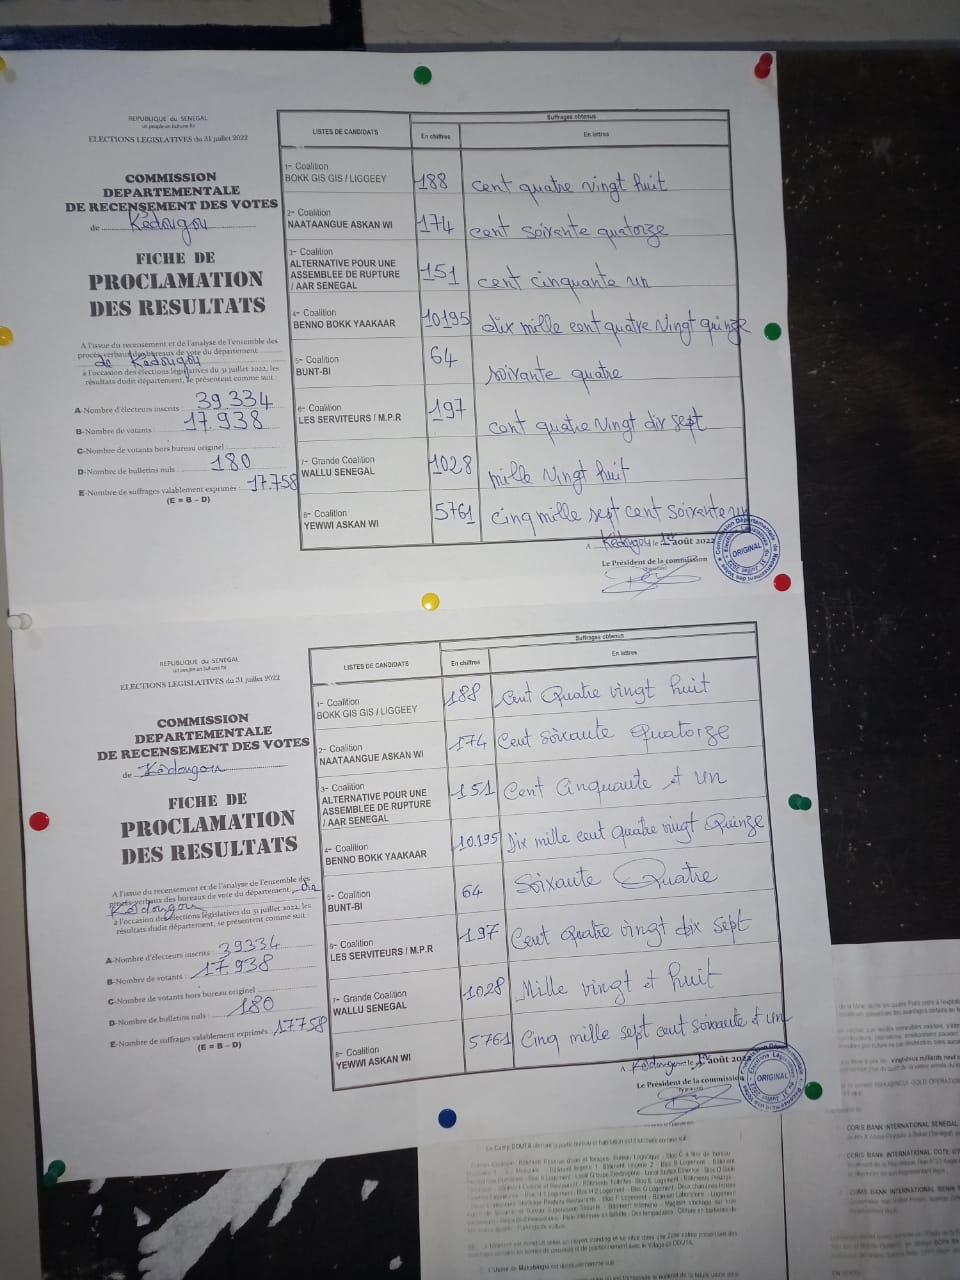 REPUBLIQUE du SENEGAL
un peuple un but une foi
ELECTIONS LEGISLATIVES du 31 juillet 2022
COMMISSION
DEPARTEMENTALE
DE RECENSEMENT DES VOTES
de Kédougou
FICHE DE
PROCLAMATION
DES RESULTATS
A l'issue du recensement et de l'analyse de l'ensemble des
procès-verbaux des bureaux de vote du département
de Kédougou
à l'occasion des élections législatives du 31 juillet 2022, les
résultats dudit département, se présentent comme suit :
A-Nombre d'électeurs inscrits : 39.334
B-Nombre de votants : 17.938
C-Nombre de votants hors bureau originel :
D-Nombre de bulletins nuls : 180
E-Nombre de suffrages valablement exprimés : 17.758
(E = B – D)
LISTES DE CANDIDATS
Suffrages obtenus
En chiffres
En lettres
1- Coalition
BOKK GIS GIS / LIGGEEY
188
cent quatre vingt huit
2- Coalition
NAATAANGUE ASKAN WI
174
cent soixante quatorze
3- Coalition
ALTERNATIVE POUR UNE
ASSEMBLEE DE RUPTURE
/ AAR SENEGAL
151
cent cinquante un
4- Coalition
BENNO BOKK YAAKAAR
10195
dix mille cent quatre vingt quinze
5- Coalition
BUNT-BI
64
soixante quatre
6- Coalition
LES SERVITEURS / M.P.R
197
cent quatre vingt dix sept
7- Grande Coalition
WALLU SENEGAL
1028
mille vingt huit
8- Coalition
YEWWI ASKAN WI
5761
cinq mille sept cent soixante un
A Kédougou le 1er août 2022
Le Président de la commission
ORIGINAL
REPUBLIQUE du SENEGAL
un peuple un but une foi
ELECTIONS LEGISLATIVES du 31 juillet 2022
COMMISSION
DEPARTEMENTALE
DE RECENSEMENT DES VOTES
de Kédougou
FICHE DE
PROCLAMATION
DES RESULTATS
A l'issue du recensement et de l'analyse de l'ensemble des
procès-verbaux des bureaux de vote du département de
Kédougou
à l'occasion des élections législatives du 31 juillet 2022, les
résultats dudit département, se présentent comme suit :
A-Nombre d'électeurs inscrits : 39334
B-Nombre de votants : 17.938
C-Nombre de votants hors bureau originel :
D-Nombre de bulletins nuls : 180
E-Nombre de suffrages valablement exprimés : 17758
(E = B – D)
LISTES DE CANDIDATS
Suffrages obtenus
En chiffres
En lettres
1- Coalition
BOKK GIS GIS / LIGGEEY
188
Cent Quatre vingt huit
2- Coalition
NAATAANGUE ASKAN WI
174
Cent Soixante Quatorze
3- Coalition
ALTERNATIVE POUR UNE
ASSEMBLEE DE RUPTURE
/ AAR SENEGAL
151
Cent Cinquante et un
4- Coalition
BENNO BOKK YAAKAAR
10.195
Dix mille cent quatre vingt Quinze
5- Coalition
BUNT-BI
64
Soixante Quatre
6- Coalition
LES SERVITEURS / M.P.R
197
Cent Quatre vingt dix sept
7- Grande Coalition
WALLU SENEGAL
1028
Mille vingt et huit
8- Coalition
YEWWI ASKAN WI
5761
Cinq mille sept cent soixante et un
A Kédougou le 1er août 2022
Le Président de la commission
ORIGINAL
CORIS BANK INTERNATIONAL SENEGAL
CORIS BANK INTERNATIONAL COTE
CORIS BANK INTERNATIONAL BENIN